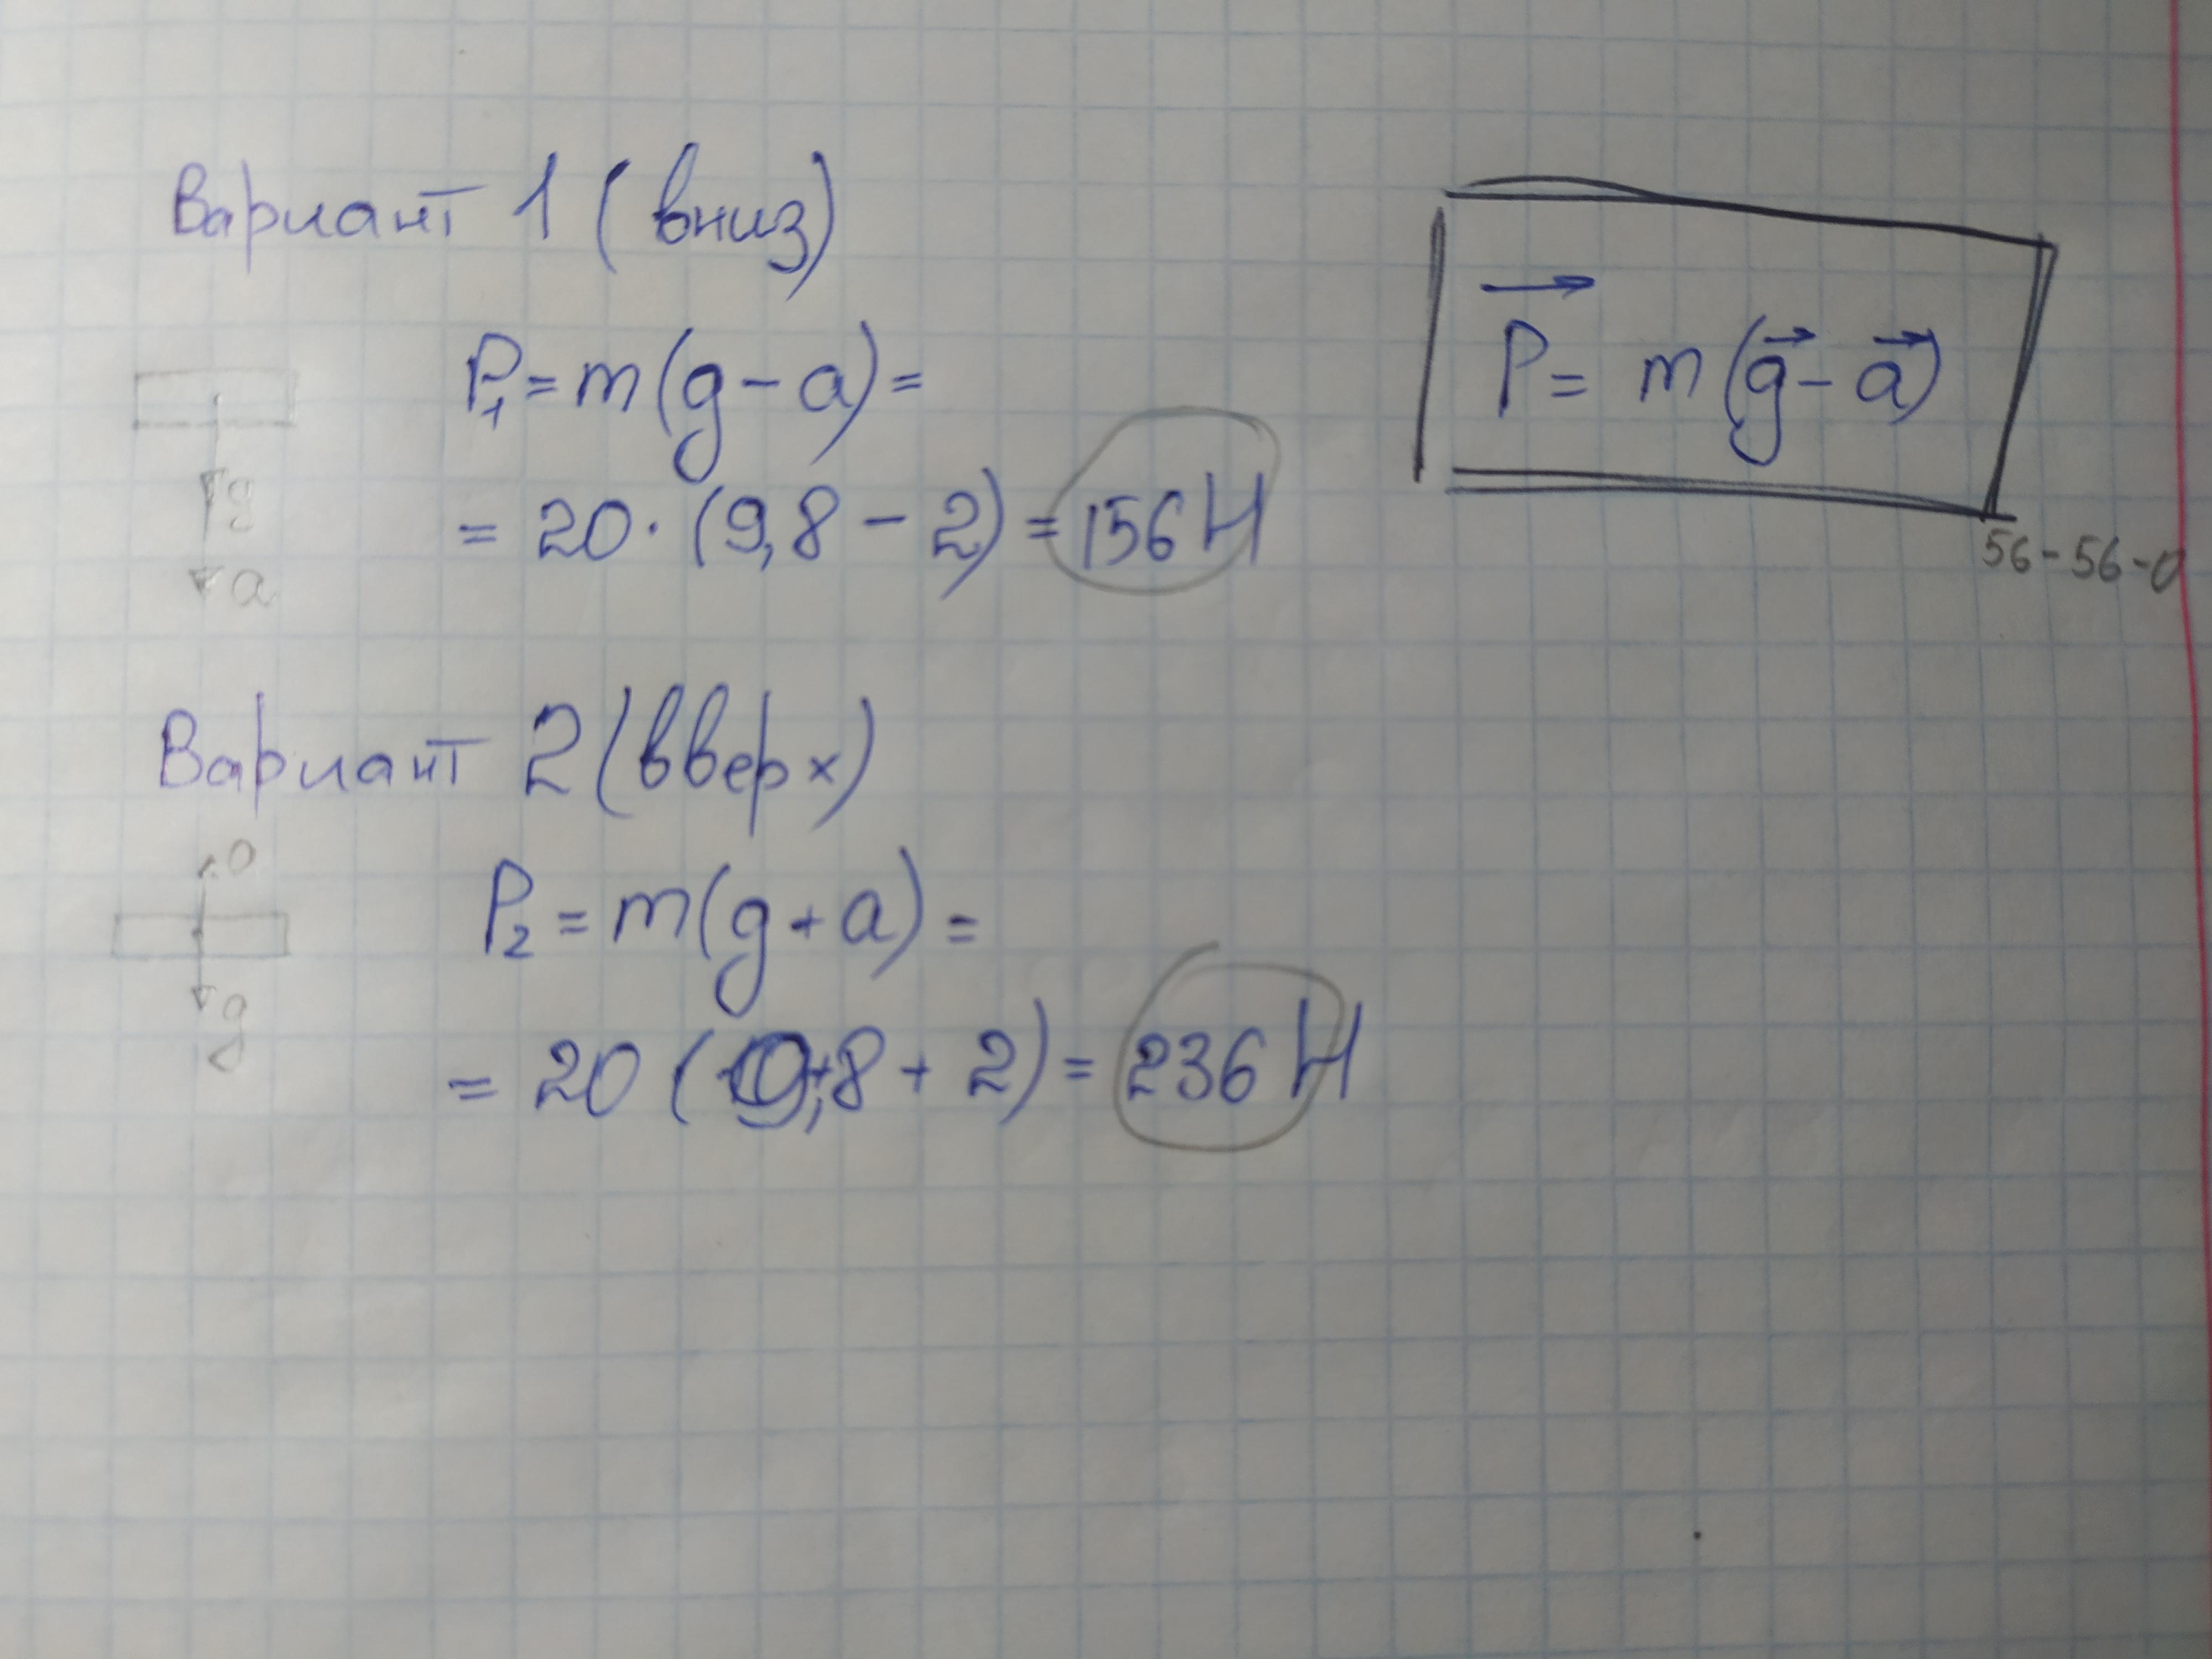 Вариант 1 (вниз)
P₁ = m(g - a) =
= 20 · (9,8 - 2) = 156 Н
g
a
P = m(g - a)
56-56-0
Вариант 2 (вверх)
a
P₂ = m(g + a) =
g
= 20 (9,8 + 2) = 236 Н